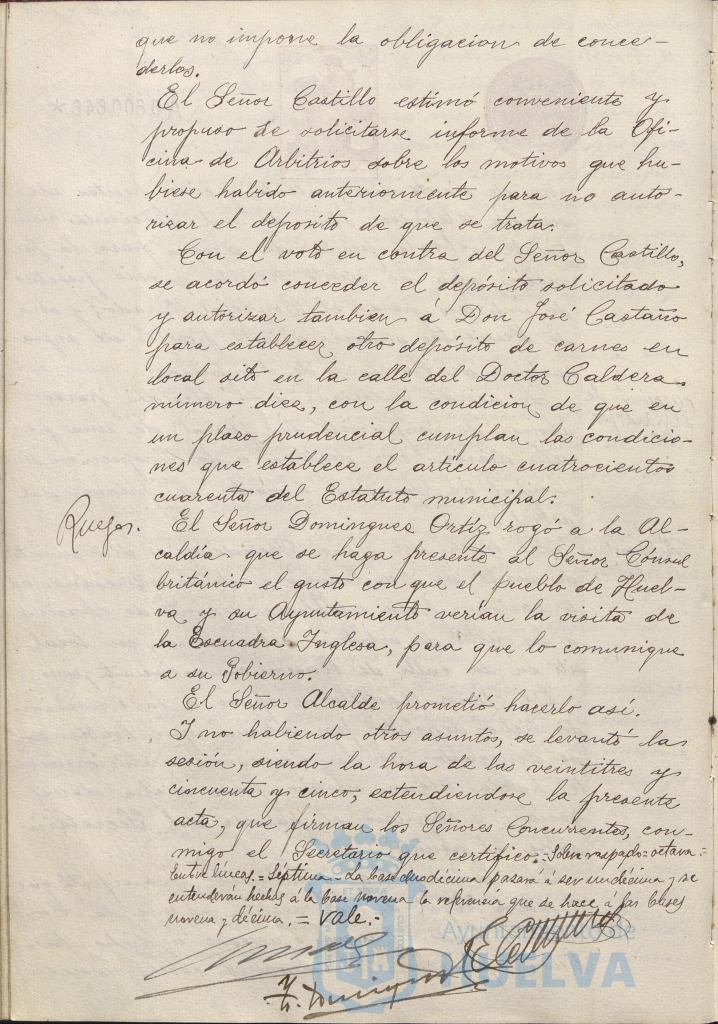 que no impone la obligacion de conce-
derlos.
El Señor Castillo estimó conveniente y
propuso de solicitarse informe de la Ofi-
cina de Arbitrios sobre los motivos que hu-
biese habido anteriormente para no auto-
rizar el deposito de que se trata.
Con el voto en contra del Señor Castillo,
se acordó conceder el depósito solicitado
y autorizar tambien á Don José Castaño
para establecer otro depósito de carnes en
local sito en la calle del Doctor Caldera
número diez, con la condicion de que en
un plazo prudencial cumplan las condicio-
nes que establece el artículo cuatrocientos
cuarenta del Estatuto municipal.
Ruegos.
El Señor Dominguez Ortíz rogó a la Al-
caldía que se haga presente al Señor Cónsul
británico el gusto con que el pueblo de Huel-
va y su Ayuntamiento verian la visita de
la Escuadra Inglesa, para que lo comunique
a su Gobierno.
El Señor Alcalde prometió hacerlo así.
Y no habiendo otros asuntos, se levantó la
sesión, siendo la hora de las veintitres y
cincuenta y cinco, extendiendose la presente
acta, que firman los Señores Concurrentes, con-
migo el Secretario que certifico.- Sobre raspado = octava =
Entre líneas = Séptima - La base duodécima pasará á ser undécima y se
entenderán hechas á la base novena la referencia que se hace á las bases
novena y décima. = Vale.-
Ayuntamiento de
HUELVA